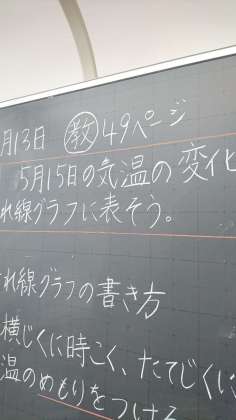 月13日 教 49ページ
5月15日の気温の変化
れ線グラフに表そう。
れ線グラフの書き方
横じくに時こく、たてじくに
温のめもりをつける